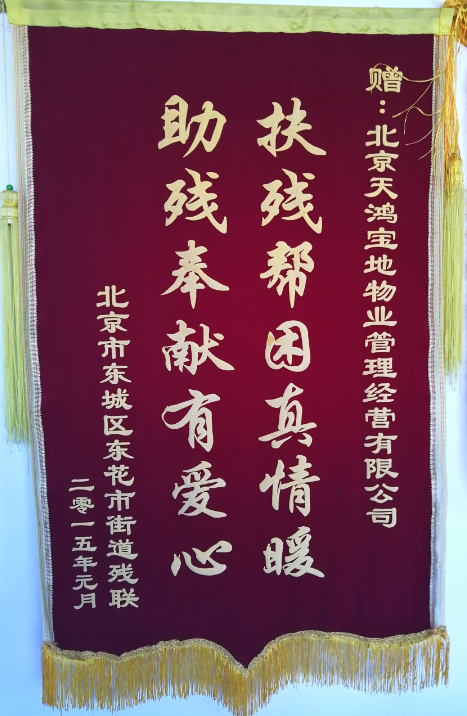 赠：北京天鸿宝地物业管理经营有限公司
扶残帮困真情暖
助残奉献有爱心
北京市东城区东花市街道残联
二零一五年元月